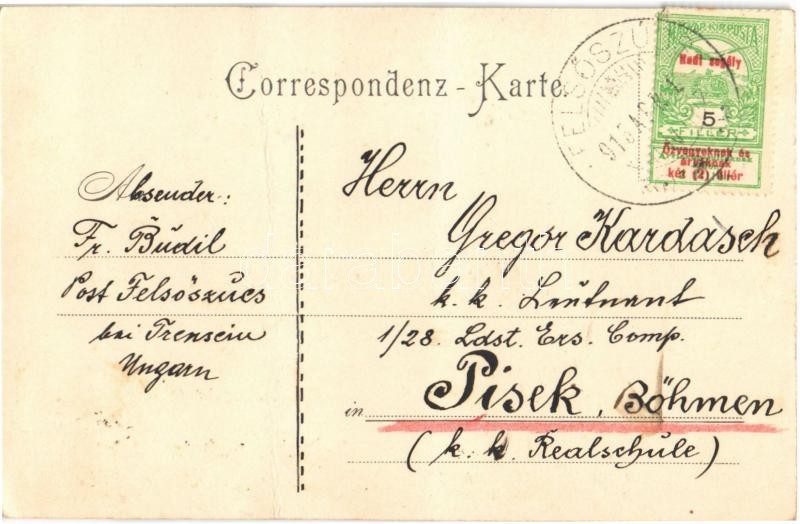 Correspondenz-Karte
FELSŐSZÚ
915
MAGYAR KIR. POSTA
Hadi segély
5
FILLÉR
Özvegyeknek és
árváknak
két (2) fillér
Absender:
Fr. Budil
Post Felsöszucs
bei Trensein
Ungarn
Herrn
Gregor Kardasch
k. k. Leutnant
1/28. Ldst. Ers. Comp.
in Pisek, Böhmen
(k. k. Realschule)